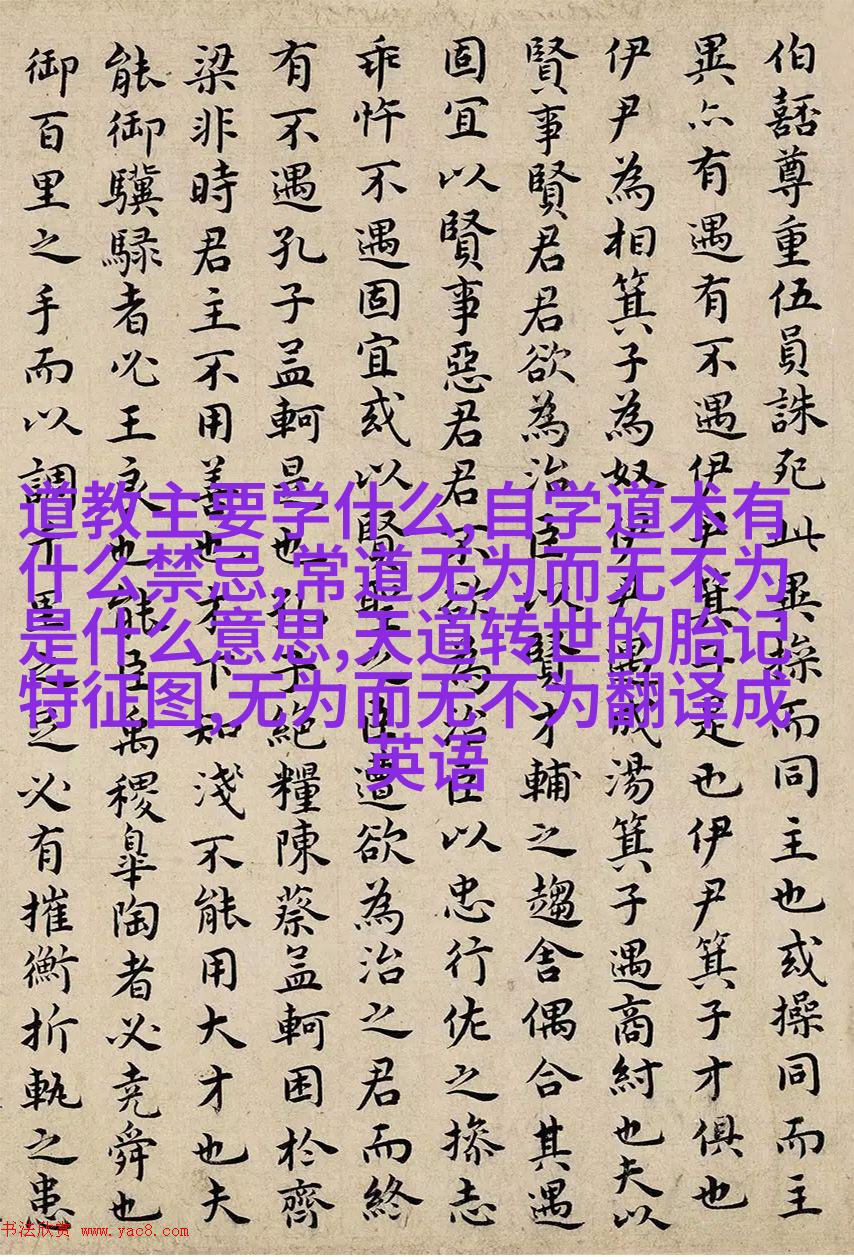 伯嚭尊重伍員誅死此異操而同主也或操同而主
異亦有遇有不遇伊尹箕子是也伊尹箕子才俱也
伊尹為相箕子為奴伊尹遇成湯箕子遇商紂也夫以
賢事賢君君欲為治臣以賢才輔之趨舍偶合其遇
固宜以賢事惡君君不欲為治臣以忠行佐之操志
乖忤不遇固宜或以賢聖之臣遭欲為治之君而終
有不遇孔子孟軻是也孔子絕糧陳蔡孟軻困於齊
梁非時君主不用善也才下知淺不能用大才也夫
能御驥騄者必王良也能臣禹稷皐陶者必堯舜也
御百里之手而以調千里之足必有摧衡折軛之患
道教主要学什么,自学道术有
什么禁忌,常道无为而无不为
是什么意思,天道转世的胎记
特征图,无为而无不为翻译成
英语
书法欣赏 www.yac8.com